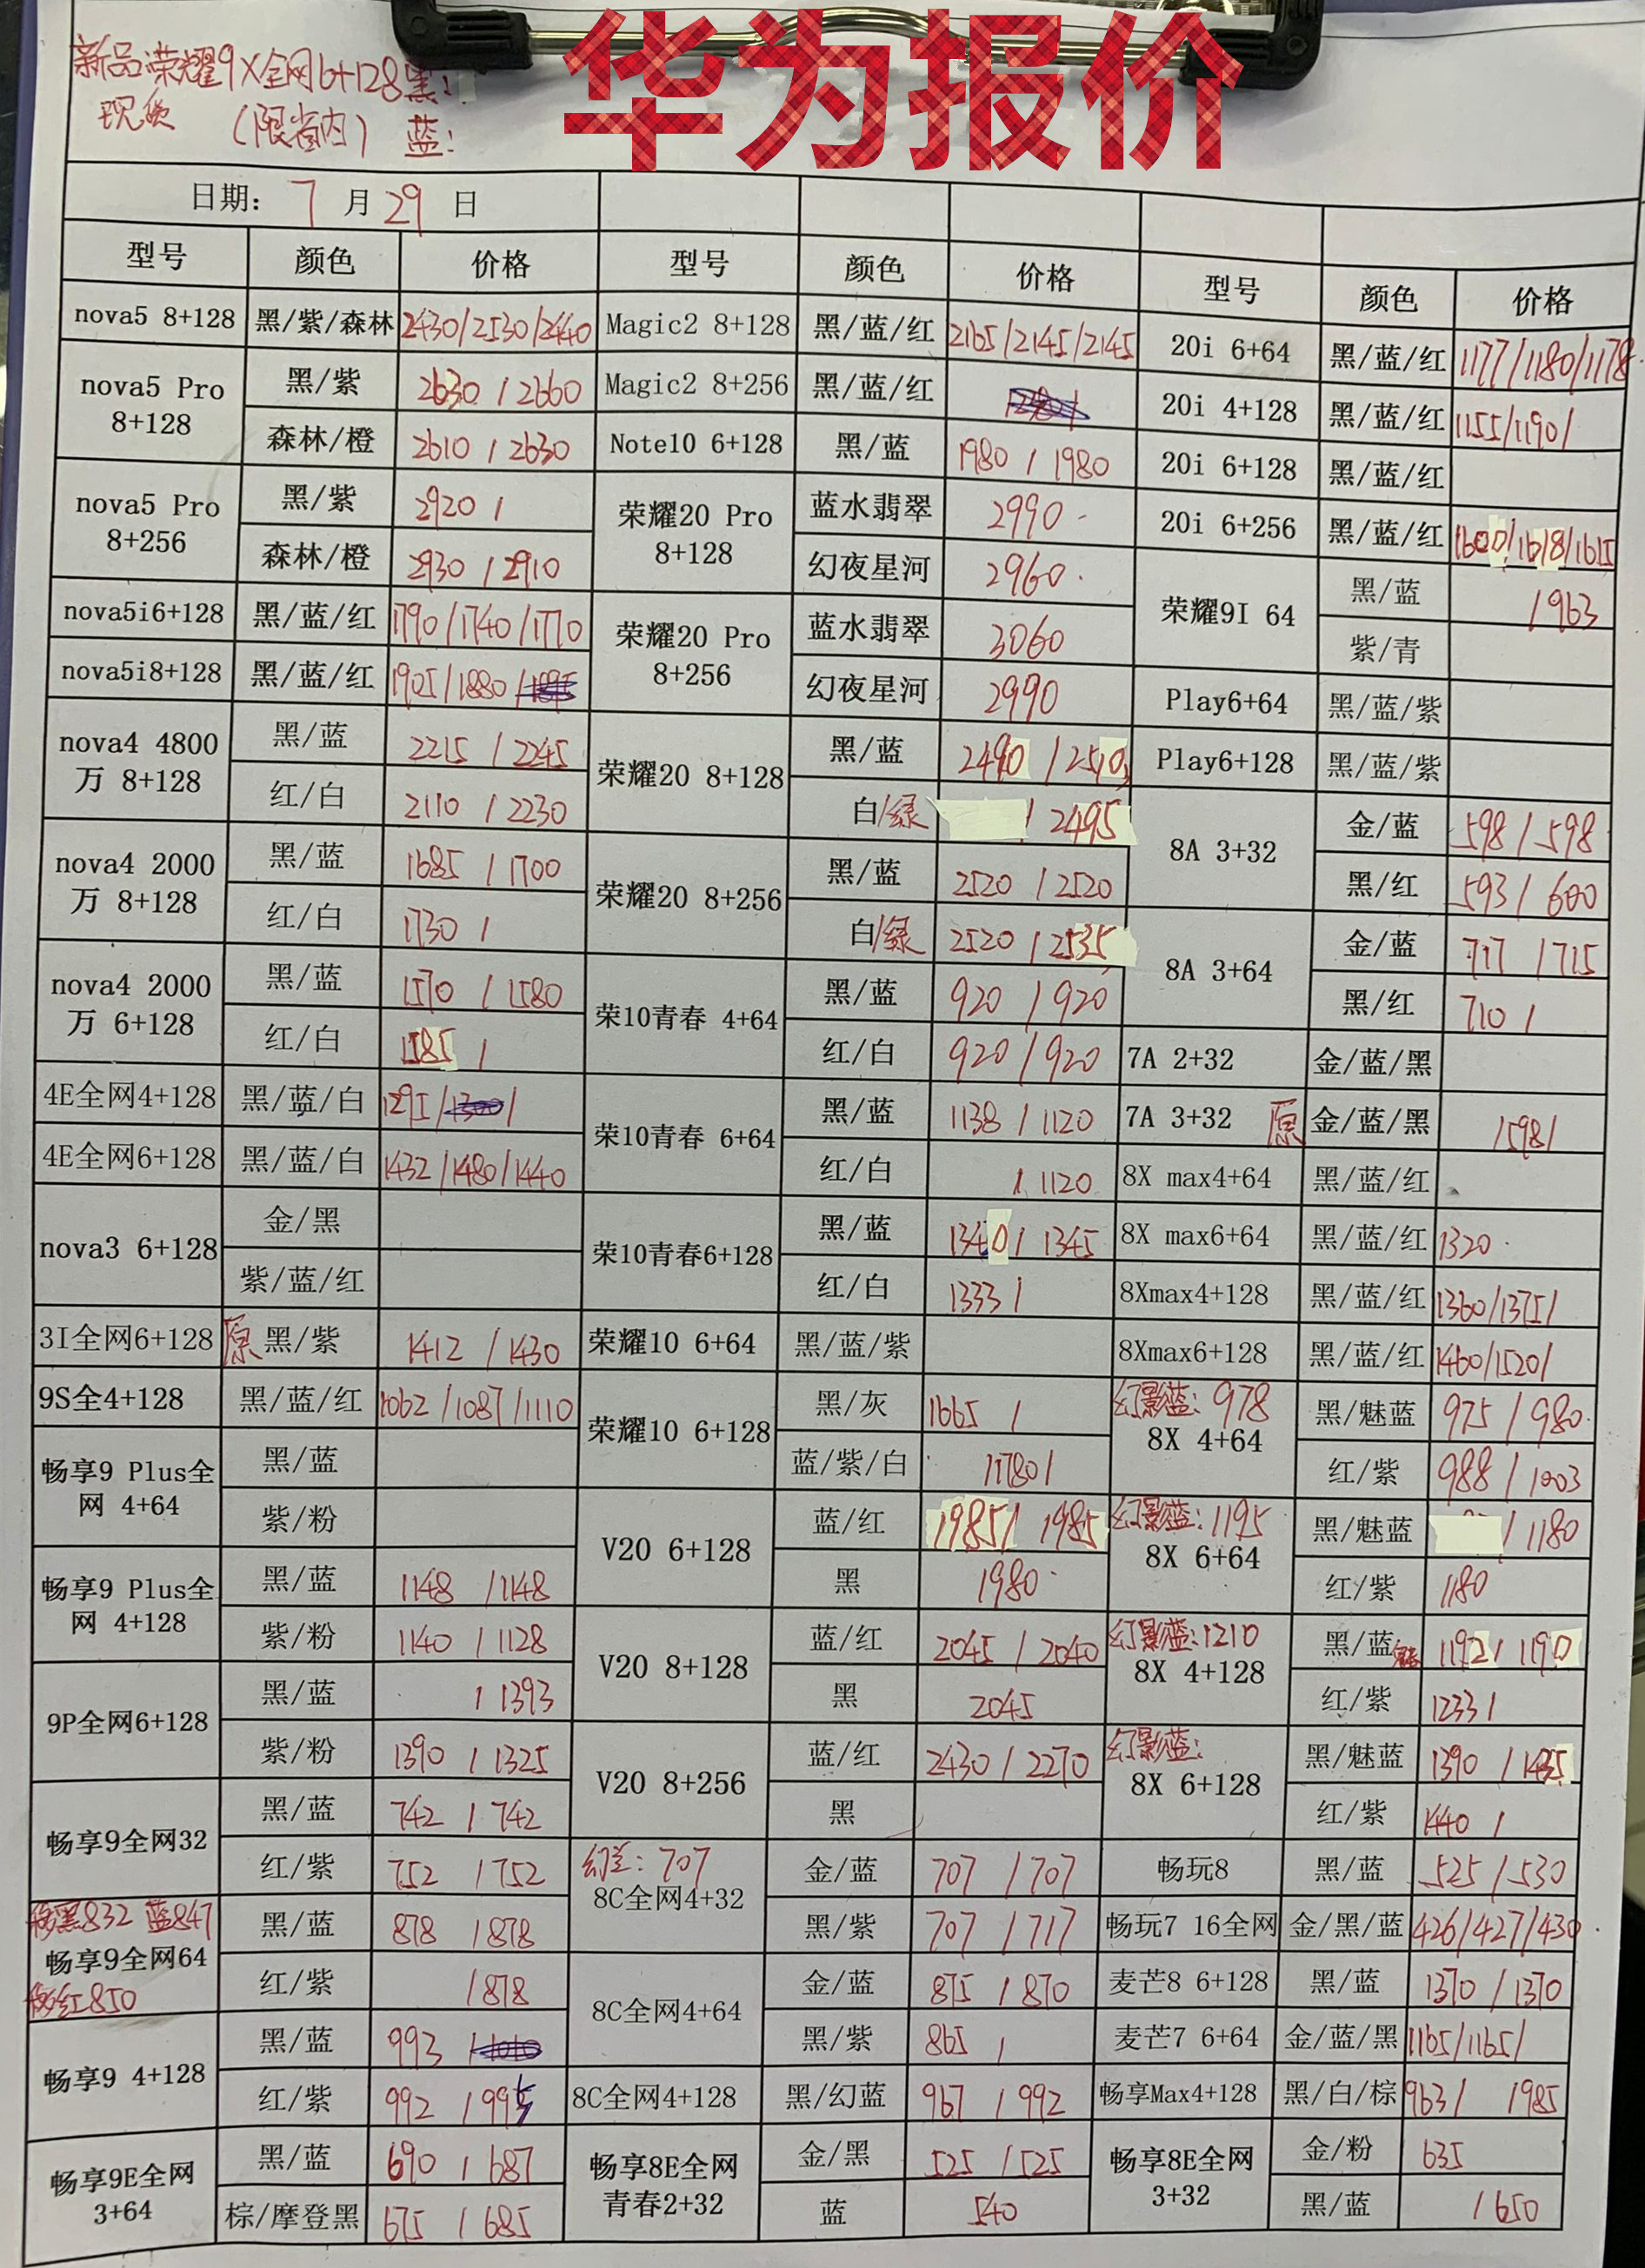 华为报价
新品荣耀9X全网6+128黑:
现货 (限省内) 蓝:
日期: 7 月 29 日
型号 颜色 价格 型号 颜色 价格 型号 颜色 价格
nova5 8+128 黑/紫/森林 2430/2530/2440 Magic2 8+128 黑/蓝/红 2165/2145/2145 20i 6+64 黑/蓝/红 1177/1180/1178
nova5 Pro 8+128 黑/紫 2630/2660 Magic2 8+256 黑/蓝/红 20i 4+128 黑/蓝/红 1155/1190/
森林/橙 2610/2630 Note10 6+128 黑/蓝 1980/1980 20i 6+128 黑/蓝/红
nova5 Pro 8+256 黑/紫 2920/ 荣耀20 Pro 8+128 蓝水翡翠 2990 20i 6+256 黑/蓝/红 1600/1618/1615
森林/橙 2930/2910 幻夜星河 2960 荣耀9I 64 黑/蓝 /963
nova5i6+128 黑/蓝/红 1790/1740/1770 荣耀20 Pro 8+256 蓝水翡翠 3060 紫/青
nova5i8+128 黑/蓝/红 1905/1880/ 幻夜星河 2990 Play6+64 黑/蓝/紫
nova4 4800万 8+128 黑/蓝 2215/2245 荣耀20 8+128 黑/蓝 2490/2510 Play6+128 黑/蓝/紫
红/白 2110/2230 白/绿 /2495 8A 3+32 金/蓝 598/598
nova4 2000万 8+128 黑/蓝 1685/1700 荣耀20 8+256 黑/蓝 2520/2520 黑/红 593/600
红/白 1730/ 白/绿 2520/2535 8A 3+64 金/蓝 717/715
nova4 2000万 6+128 黑/蓝 1570/1580 荣10青春 4+64 黑/蓝 920/920 黑/红 710/
红/白 1585/ 红/白 920/920 7A 2+32 金/蓝/黑
4E全网4+128 黑/蓝/白 1295/1300/ 荣10青春 6+64 黑/蓝 1138/1120 7A 3+32 原 金/蓝/黑 /598/
4E全网6+128 黑/蓝/白 1432/1480/1440 红/白 /1120 8X max4+64 黑/蓝/红
nova3 6+128 金/黑 荣10青春6+128 黑/蓝 1340/1345 8X max6+64 黑/蓝/红 1320
紫/蓝/红 红/白 1333/ 8Xmax4+128 黑/蓝/红 1360/1375/
3I全网6+128 原 黑/紫 1412/1430 荣耀10 6+64 黑/蓝/紫 8Xmax6+128 黑/蓝/红 1460/1520/
9S全4+128 黑/蓝/红 1062/1087/1110 荣耀10 6+128 黑/灰 1665/ 幻影蓝:978 8X 4+64 黑/魅蓝 975/980
畅享9 Plus全网 4+64 黑/蓝 蓝/紫/白 /1780/ 红/紫 988/1003
紫/粉 V20 6+128 蓝/红 1985/1985 幻影蓝:1195 8X 6+64 黑/魅蓝 /1180
畅享9 Plus全网 4+128 黑/蓝 1148/1148 黑 1980 红/紫 1180
紫/粉 1140/1128 V20 8+128 蓝/红 2045/2040 幻影蓝:1210 8X 4+128 黑/蓝 1192/1190
9P全网6+128 黑/蓝 /1393 黑 2045 红/紫 1233/
紫/粉 1390/1325 V20 8+256 蓝/红 2430/2270 幻影蓝: 8X 6+128 黑/魅蓝 1390/1435
畅享9全网32 黑/蓝 742/742 黑 红/紫 1440/
红/紫 752/752 幻兰:707 8C全网4+32 金/蓝 707/707 畅玩8 黑/蓝 525/530
黑832 蓝847 畅享9全网64 黑/蓝 878/878 黑/紫 707/717 畅玩7 16全网 金/黑/蓝 426/427/430
红850 红/紫 /878 8C全网4+64 金/蓝 875/870 麦芒8 6+128 黑/蓝 1370/1370
畅享9 4+128 黑/蓝 993/1010 黑/紫 865/ 麦芒7 6+64 金/蓝/黑 1165/1165/
红/紫 992/995 8C全网4+128 黑/幻蓝 967/992 畅享Max4+128 黑/白/棕 963/ /985
畅享9E全网 3+64 黑/蓝 690/687 畅享8E全网青春2+32 金/黑 525/525 畅享8E全网 3+32 金/粉 635
棕/摩登黑 675/685 蓝 540 黑/蓝 /650